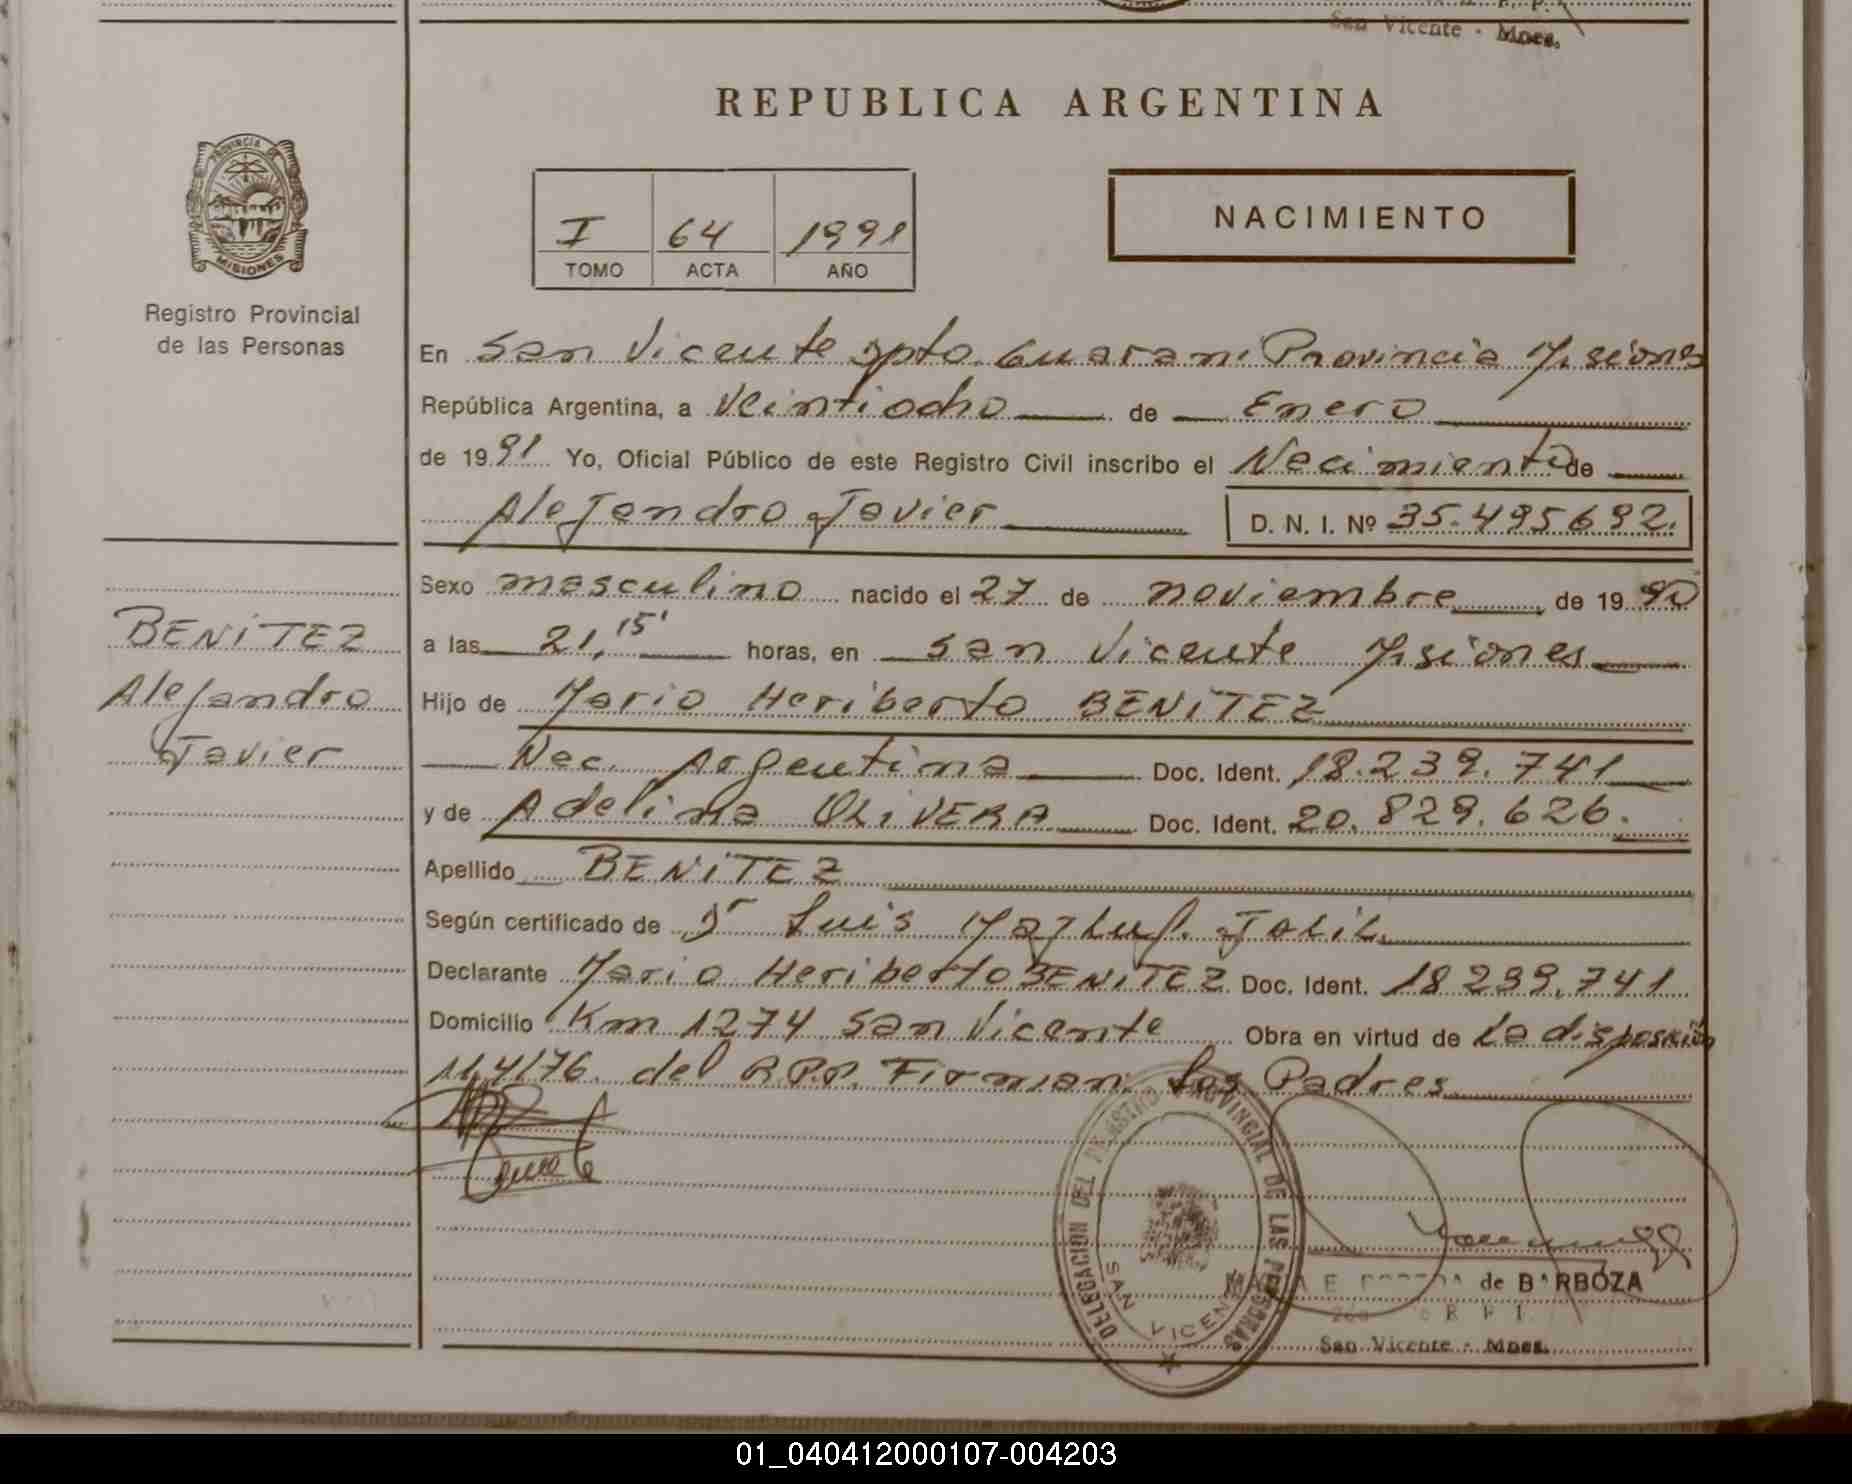 San Vicente - Mnes.
REPUBLICA ARGENTINA
PROVINCIA DE
MISIONES
Registro Provincial
de las Personas
I 64 1991
TOMO ACTA AÑO
NACIMIENTO
En San Vicente Dpto. Guarani Provincia Misiones
República Argentina, a Veintiocho de Enero
de 1991 Yo, Oficial Público de este Registro Civil inscribo el Nacimiento de
Alejandro Javier D. N. I. Nº 35.495692.
BENiTEZ
Alejandro
Javier
Sexo masculino nacido el 27 de noviembre de 1990
a las 21,15' horas, en San Vicente Misiones
Hijo de Mario Heriberto BENiTEZ
Nac. Argentina Doc. Ident. 18.239.741
y de Adelina OLiVERA Doc. Ident. 20.829.626.
Apellido BENiTEZ
Según certificado de Dr Luis
Declarante Mario Heriberto BENiTEZ Doc. Ident. 18239.741
Domicilio Km 1274 San Vicente Obra en virtud de La disposición
114/76. del R.P.P. Firman los Padres
DELEGACION DEL REGISTRO PROVINCIAL DE LAS PERSONAS
SAN VICENTE
de BARBOZA
San Vicente - Mnes.
01_040412000107-004203